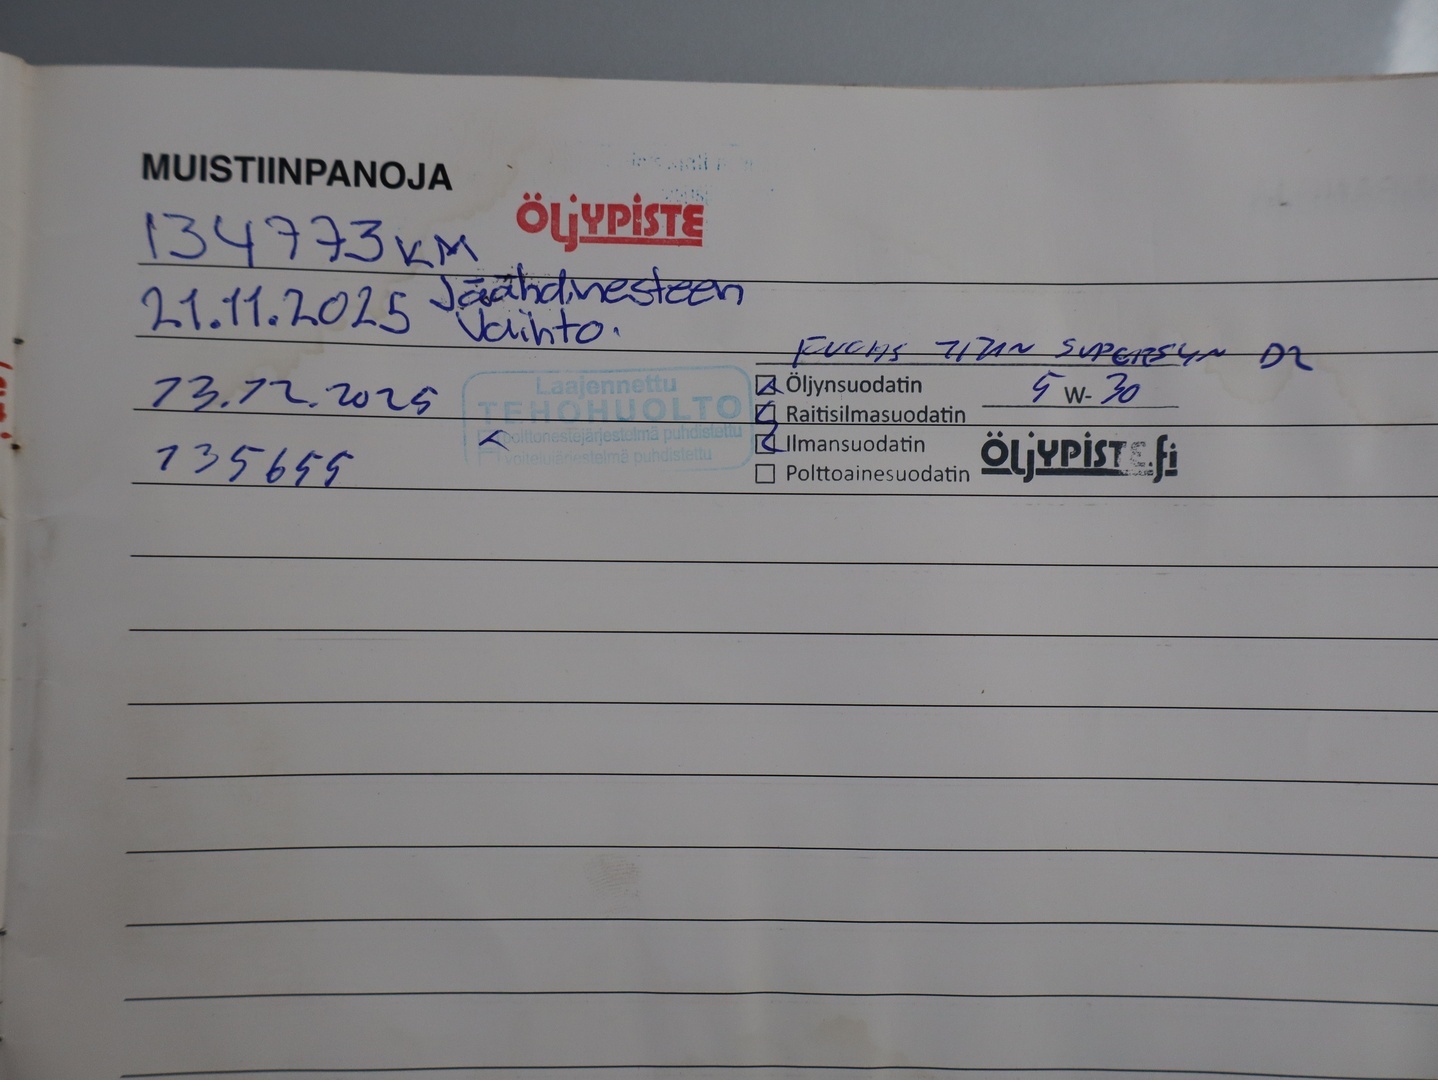 MUISTIINPANOJA
ÖLJYPISTE
134773 KM
21.11.2025 Jäähdinesteen
Vaihto.
FUCHS TITAN SUPERSYN D2
13.12.2025
Laajennettu
TEHOHUOLTO
polttonestejärjestelmä puhdistettu
puhdistettu
135655
Öljynsuodatin
5 W- 30
Raitisilmasuodatin
Ilmansuodatin
ÖLJYPISTE.fi
Polttoainesuodatin